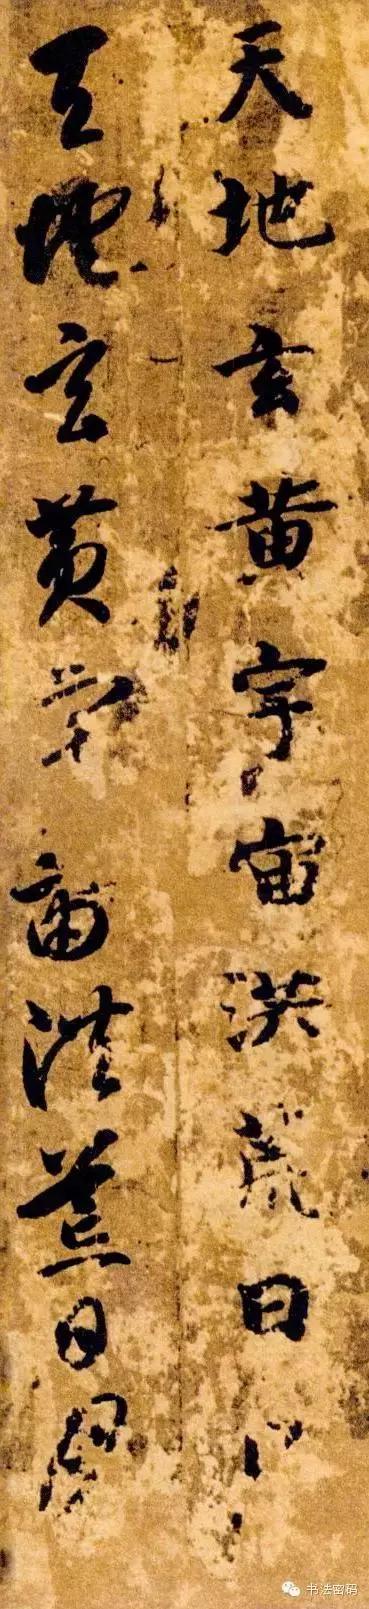 天地玄黄宇宙洪荒日
天地玄黄宇宙洪荒日月
书法密码